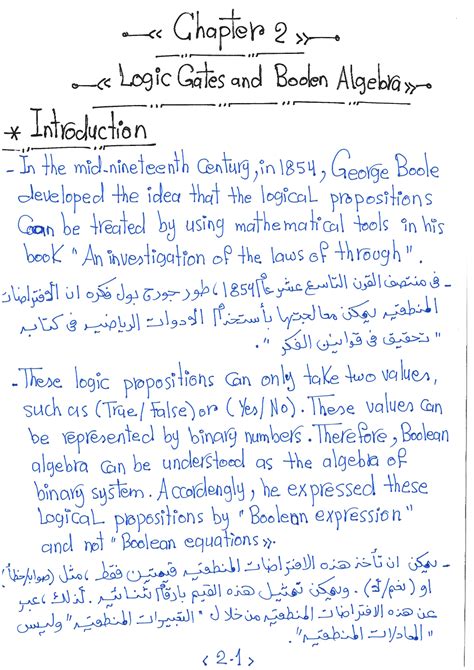 Chapter 2
Logic Gates and Boolen Algebra
* Introduction
- In the mid-nineteenth Century, in 1854, George Boole
developed the idea that the logical propositions
Can be treated by using mathematical tools in his
book "An investigation of the laws of through".
- في منتصف القرن التاسع عشر عام 1854، طور جورج بول فكره ان الافتراضات
المنطقيه يمكن معالجتها بأستخدام الأدوات الرياضيه في كتابه
"تحقيق في قوانين الفكر".
- These logic propositions can only take two values,
such as (True/False) or (Yes/No). These values can
be represented by binary numbers. Therefore, Boolean
algebra can be understood as the algebra of
binary system. Accordengly, he expressed these
logical propositions by "Boolean expression"
and not "Boolean equations».
- يمكن ان تأخذ هذه الافتراضات المنطقيه قيمتين فقط، مثل (صواب/خطأ)
او (نعم/لا). ويمكن تمثيل هذه القيم بارقام ثنائيه. لذلك، عبر
عن هذه الافتراضات المنطقيه من خلال "التعبيرات المنطقيه" وليس
"المعادلات المنطقيه".
< 2-1 >